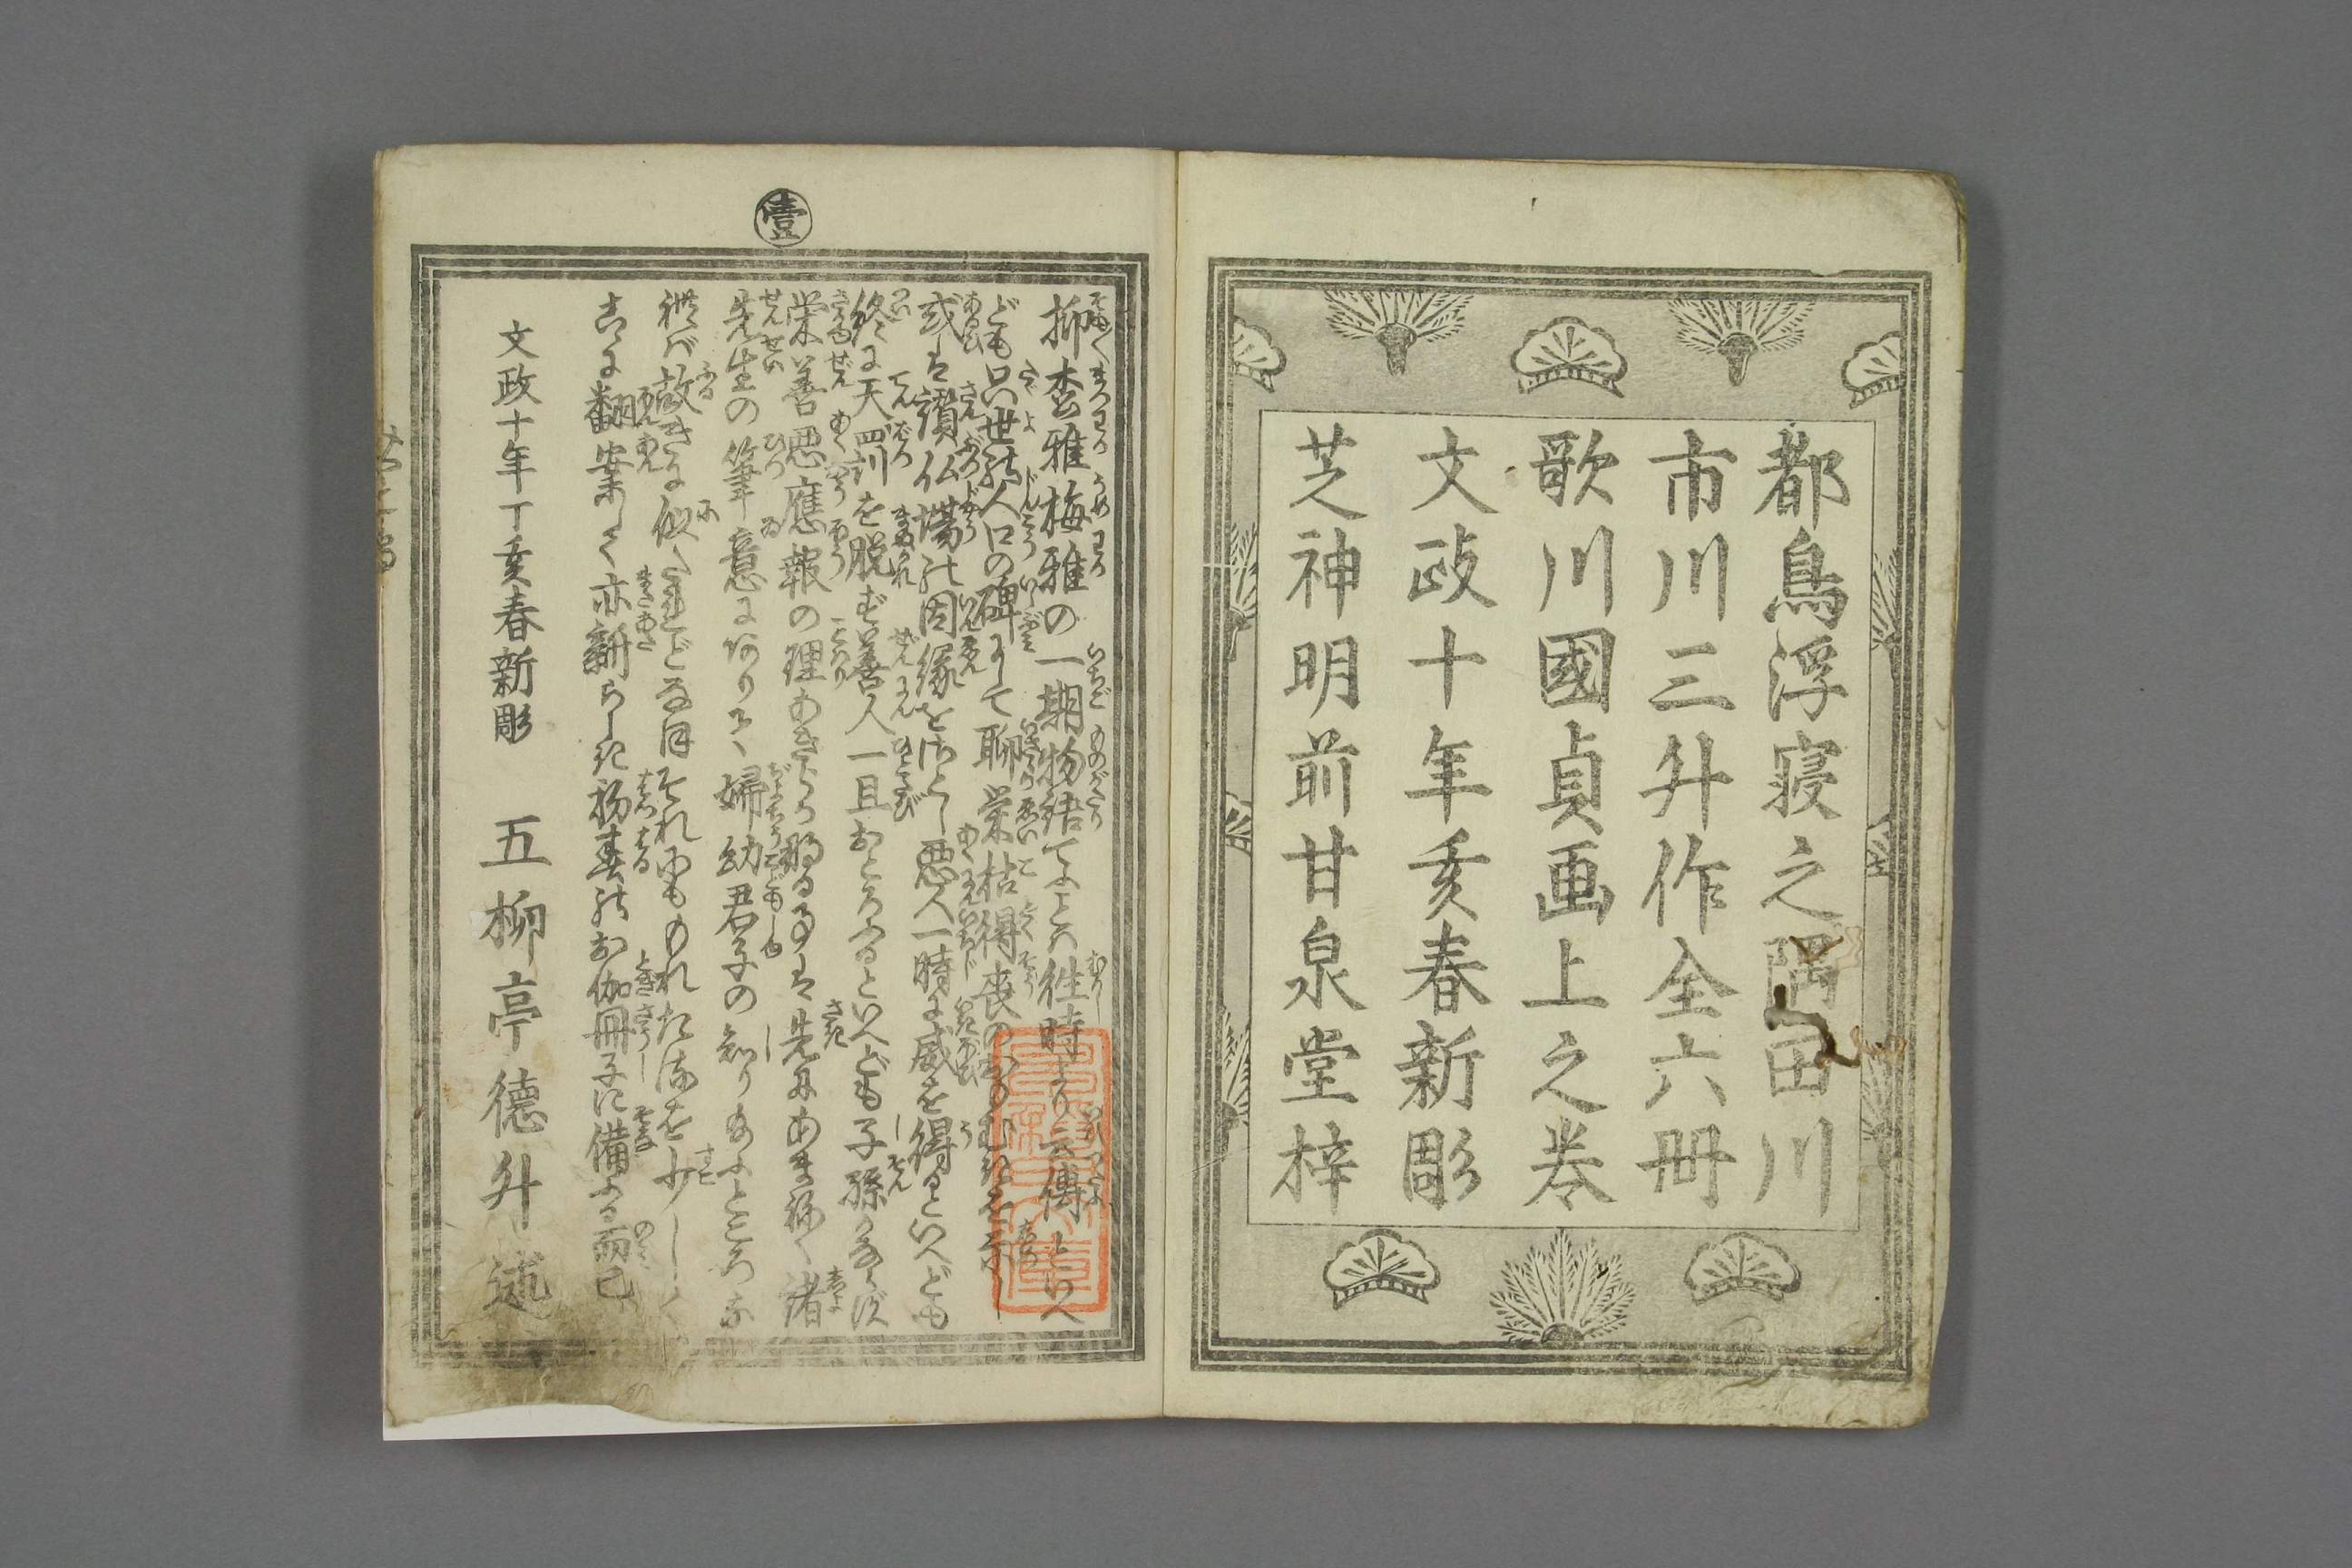 都鳥浮寝之隅田川
市川三升作全六冊
歌川國貞画上之巻
文政十年亥春新彫
芝神明前甘泉堂梓
壹
抑松雅梅雅の一期物語てふことは往時より云傳といへ
ども只世の人口の碑にして聊栄枯得喪の
或は讃仏場の因縁を
悪人一時に威を得るといへども
終に天罰を脱ず善人一旦おとろふるといへども子孫
栄善悪應報の理あきらか那る事は先にあま稱く諸
先生の筆意にありて婦幼君子の知り給ふところな
禮ば故きに似たれどなほそれにもれたるを少しく
爰に翻案して亦新らしき初春のお伽冊子に備ふる而已
文政十年丁亥春新彫 五柳亭德升述